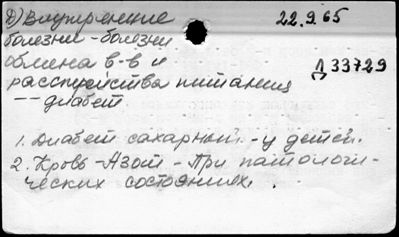 Д) Внутренние
22.9.65
болезни - болезни
обмена в-в и
Д 33729
расстройства питания
-- диабет
1. Диабет сахарный. - у детей.
2. Кровь - Азот - При патологи-
ческих состояниях.